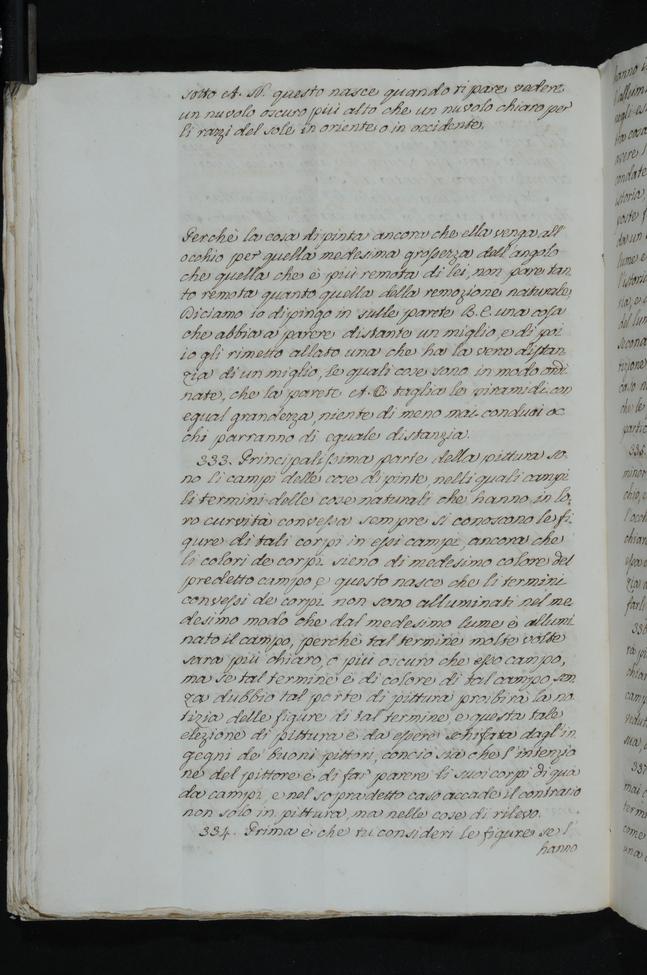 sotto A. B. questo nasce quando ti pare vedere
un nuvolo oscuro più alto che un nuvolo chiaro per
li razzi del sole in oriente o in occidente,
Perchè la cosa dipinta ancora che ella venga all'
occhio per quella medesima grossezza dell'angolo
che quella che è più remota di lei, non pare tan
to remota quanto quella della remozione naturale,
Diciamo io dipingo in sulle parete B. C. una cosa
che abbia a parere distante un miglio, e di poi
io gli rimetto allato una che ha la vera distan
zia di un miglio, le quali cose sono in modo ordi
nate, che la parete A. B. taglia le piramidi con
egual grandezza, niente di meno mai con duoi oc
chi parranno di equale distanzia.
333. Principalissima parte della pittura so
no li campi delle cose dipinte, nelli quali campi
li termini delle cose naturali che hanno in lo
ro curvità convessa sempre si conoscono le fi
gure di tali corpi in essi campi, ancora che
li colori de corpi sieno di medesimo colore del
predetto campo, e questo nasce che li termini
convessi de corpi non sono alluminati nel me
desimo modo che dal medesimo lume è allumi
nato il campo, perchè tal termine molte volte
sara più chiaro, o più oscuro che esso campo,
ma se tal termine è di colore di tal campo, sen
za dubbio tal parte di pittura proibirà la no
tizia delle figure di tal termine, e questa tale
elezione di pittura è da essere schifata dagl'in
gegni de' buoni pittori, concio sia che l'intenzio
ne del pittore è di far parere li suoi corpi di quà
da campi, e nel sopradetto caso accade il contrario
non solo in pittura, ma nelle cose di rilevo.
334. Prima è che tu consideri le figure se l'
hanno